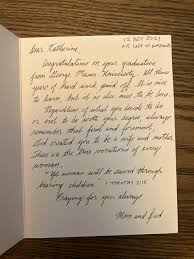 12 DEC 2021
Dear Katherine,
Congratulations on your graduation
from George Mason University. All those
years of hard work paid off. It is nice
to learn, but it is also nice to be done.
Regardless of what you decide to do
or not to do with your degree, always
remember that first and foremost,
God created you to be a wife and mother.
These are the true vocations of every
woman.
"Yet woman will be saved through
bearing children" 1 TIMOTHY 2:15
Praying for you always
Mom and Dad